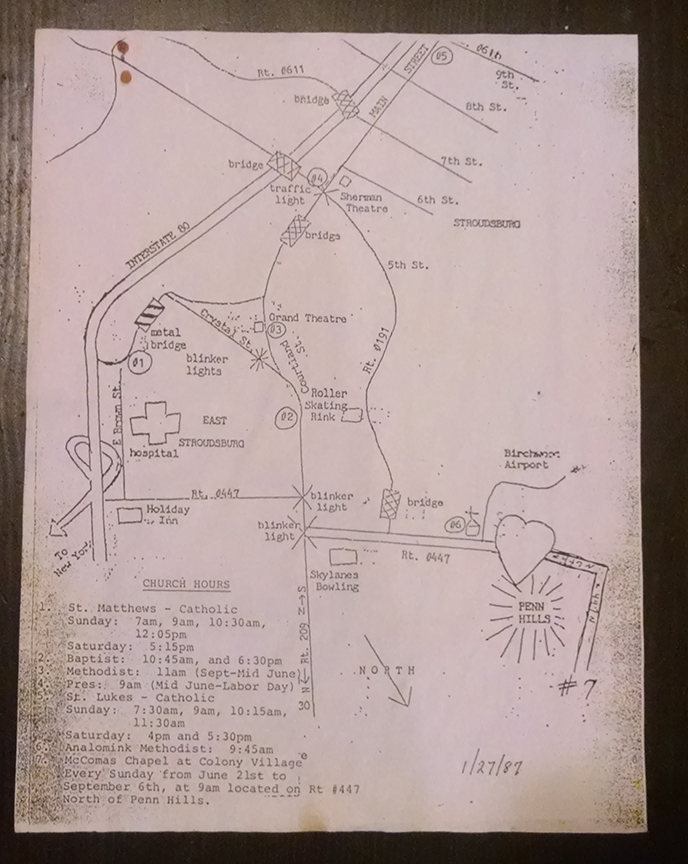 Rt. 0611
bridge
MAIN STREET
05
9th
St.
8th St.
7th St.
6th St.
STROUDSBURG
bridge
04
traffic
light
Sherman
Theatre
bridge
INTERSTATE 80
5th St.
Grand Theatre
03
Crystal St.
Courtland St.
metal
bridge
01
blinker
lights
Rt. 0191
E Brown St.
02
Roller
Skating
Rink
EAST
STROUDSBURG
hospital
Birchwood
Airport
Rt. 0447
blinker
light
bridge
Holiday
Inn
blinker
light
06
Rt. 0447
To
New York
Skylanes
Bowling
PENN
HILLS
Rt. 209 N→S
NORTH
#7
CHURCH HOURS
1. St. Matthews - Catholic
Sunday: 7am, 9am, 10:30am,
12:05pm
Saturday: 5:15pm
2. Baptist: 10:45am, and 6:30pm
3. Methodist: 11am (Sept-Mid June)
Pres: 9am (Mid June-Labor Day)
St. Lukes - Catholic
Sunday: 7:30am, 9am, 10:15am,
11:30am
Saturday: 4pm and 5:30pm
6. Analomink Methodist: 9:45am
7. McComas Chapel at Colony Village
Every Sunday from June 21st to
September 6th, at 9am located on Rt #447
North of Penn Hills.
1/27/87